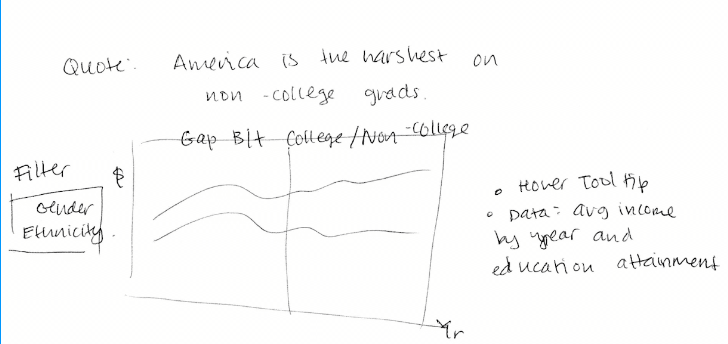 Quote: America is the harshest on
non-college grads.
Gap B/t College/Non-College
Filter
Gender
Ethnicity
$
Yr
• Hover Tool tip
• Data: avg income
by year and
education attainment